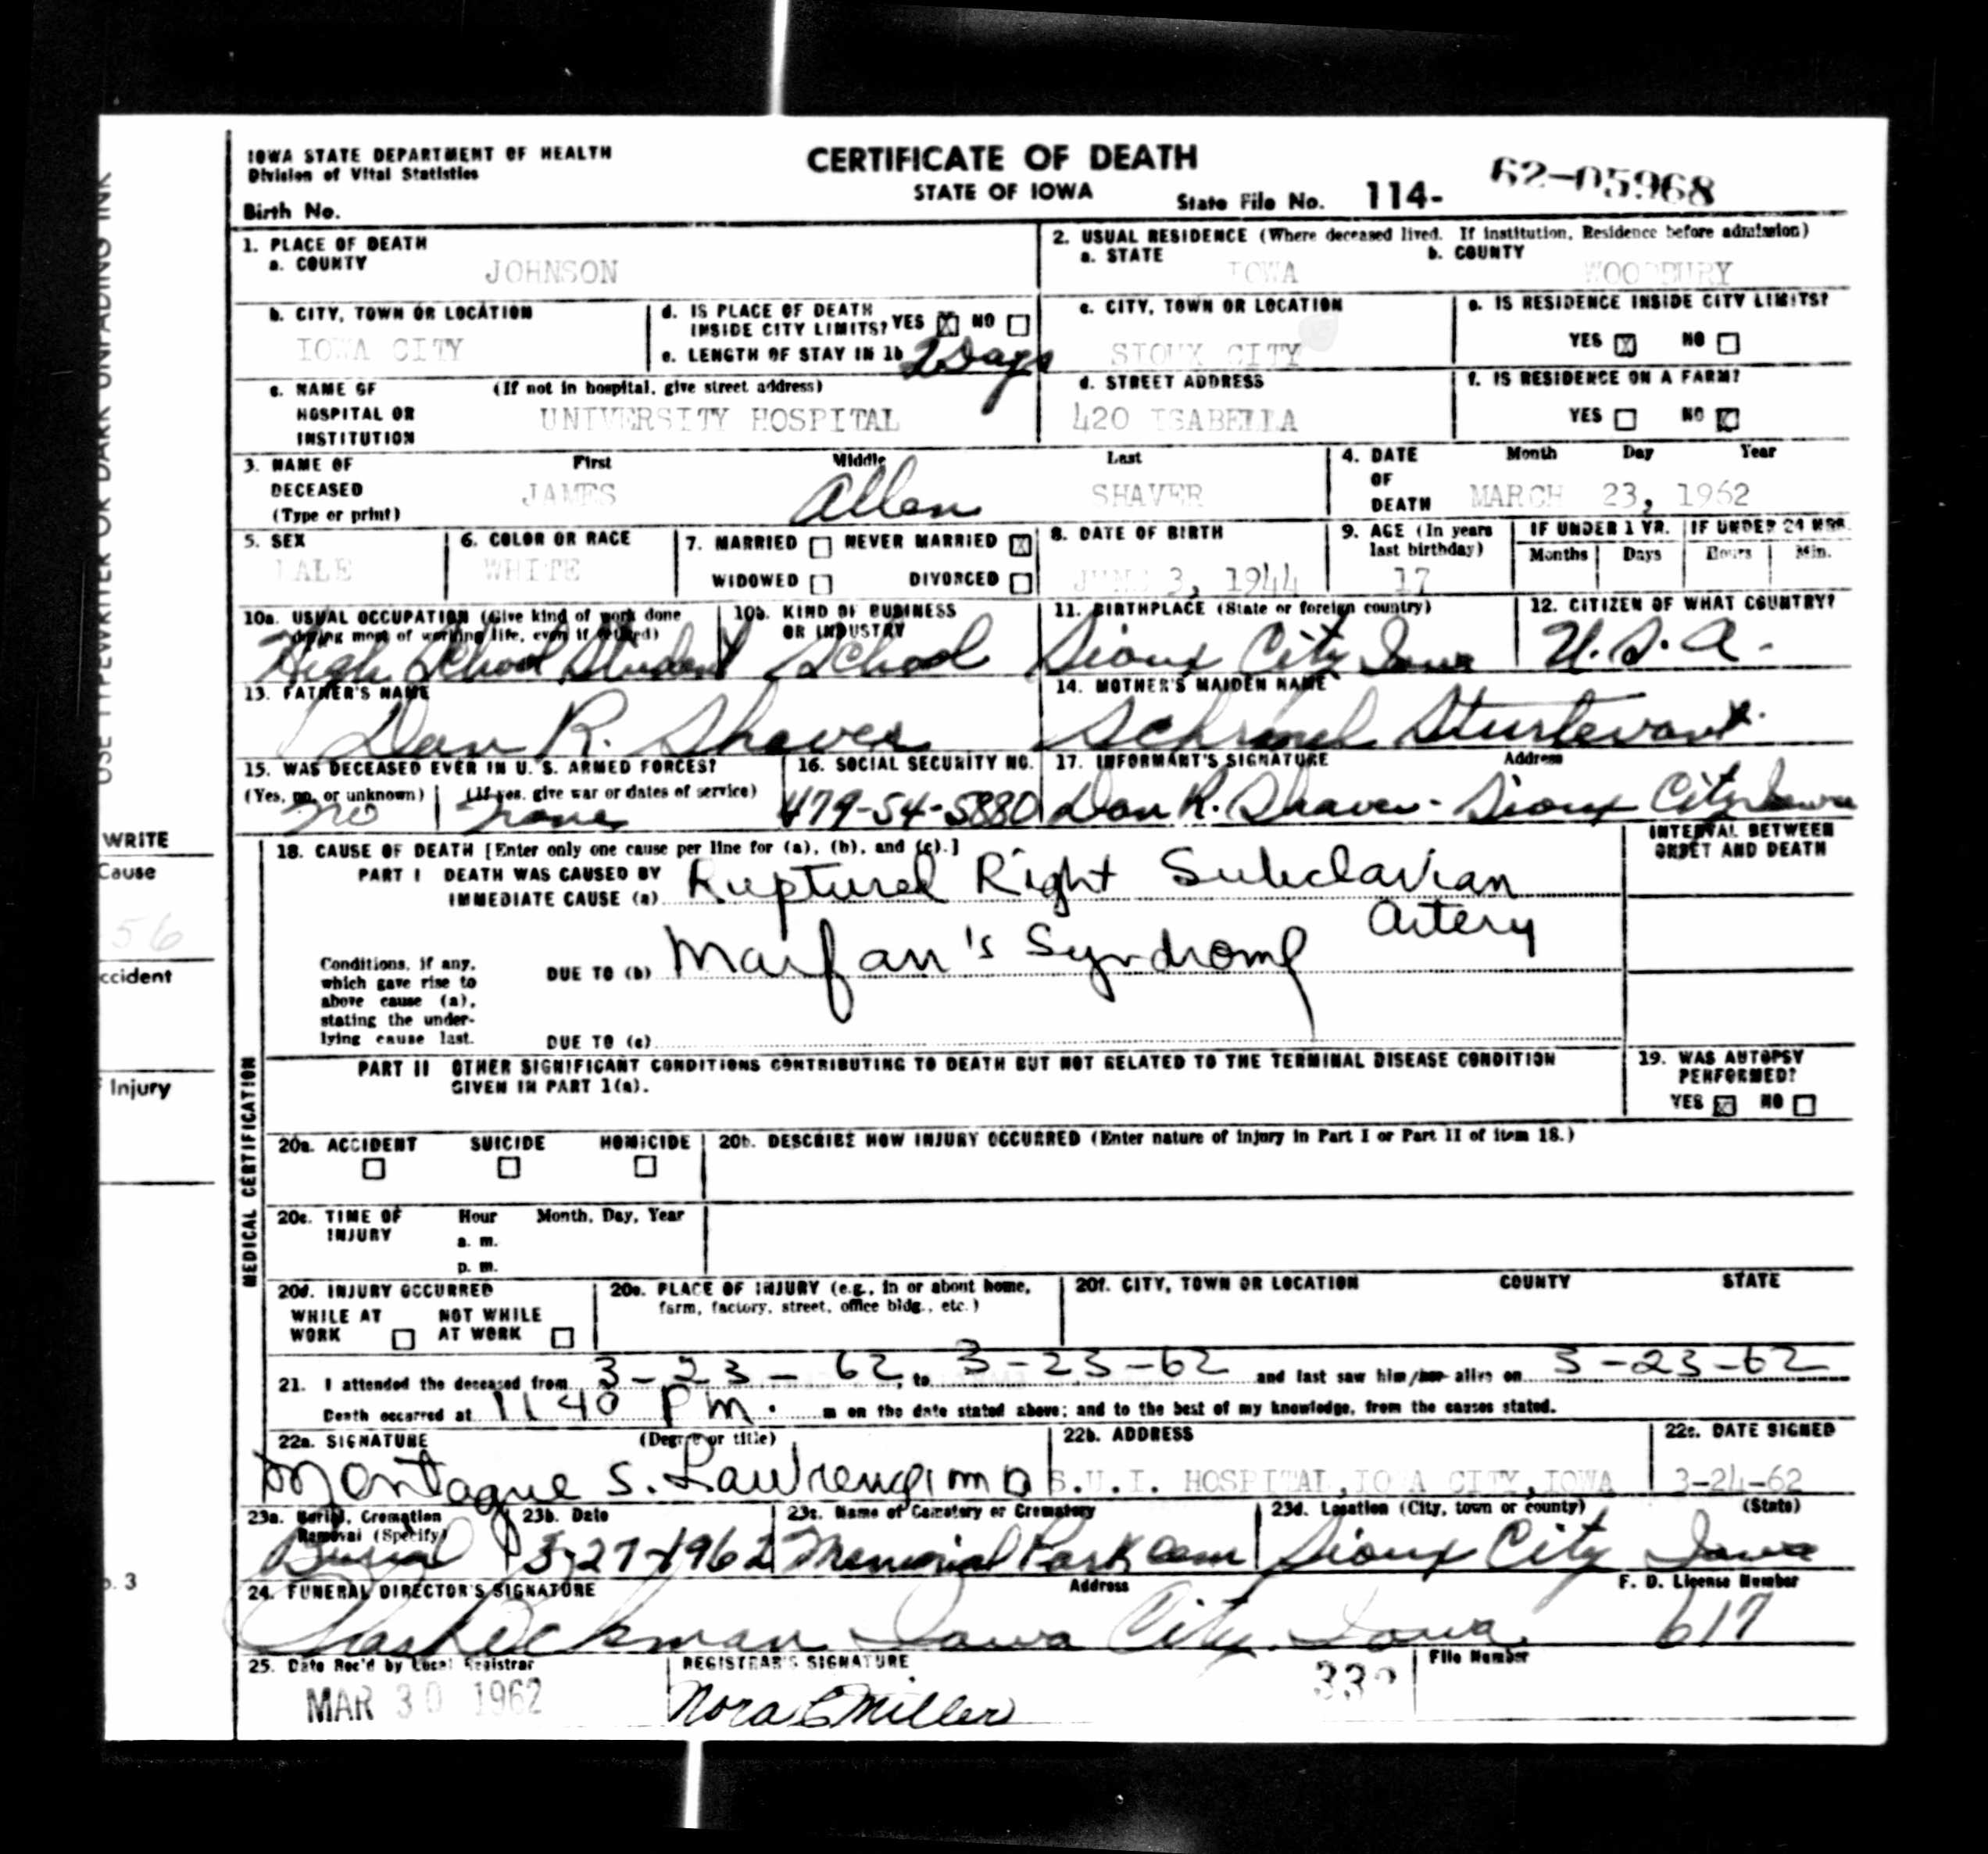 IOWA STATE DEPARTMENT OF HEALTH
Division of Vital Statistics
CERTIFICATE OF DEATH
STATE OF IOWA
State File No. 114- 62-05968
Birth No.
1. PLACE OF DEATH
a. COUNTY JOHNSON
2. USUAL RESIDENCE (Where deceased lived. If institution, Residence before admission)
a. STATE IOWA b. COUNTY WOODBURY
b. CITY, TOWN OR LOCATION IOWA CITY
d. IS PLACE OF DEATH INSIDE CITY LIMITS? YES X NO
e. LENGTH OF STAY IN 1b 2 Days
c. CITY, TOWN OR LOCATION SIOUX CITY
e. IS RESIDENCE INSIDE CITY LIMITS?
YES X NO
c. NAME OF HOSPITAL OR INSTITUTION (If not in hospital, give street address) UNIVERSITY HOSPITAL
d. STREET ADDRESS 420 ISABELLA
f. IS RESIDENCE ON A FARM?
YES NO X
3. NAME OF DECEASED (Type or print) First Middle Last
JAMES Allen SHAVER
4. DATE OF DEATH Month Day Year
MARCH 23, 1962
5. SEX MALE
6. COLOR OR RACE WHITE
7. MARRIED NEVER MARRIED X
WIDOWED DIVORCED
8. DATE OF BIRTH 3, 1944
9. AGE (In years last birthday) 17
IF UNDER 1 YR. IF UNDER 24 HRS.
Months Days Hours Min.
10a. USUAL OCCUPATION (Give kind of work done during most of working life, even if retired)
High School Student
10b. KIND OF BUSINESS OR INDUSTRY
School
11. BIRTHPLACE (State or foreign country)
Sioux City Iowa
12. CITIZEN OF WHAT COUNTRY?
U.S.A.
13. FATHER'S NAME
Dan R. Shaver
14. MOTHER'S MAIDEN NAME
Sturtevant
15. WAS DECEASED EVER IN U. S. ARMED FORCES?
(Yes, no, or unknown) (If yes, give war or dates of service)
no none
16. SOCIAL SECURITY NO.
479-54-5880
17. INFORMANT'S SIGNATURE Address
Dan R. Shaver - Sioux City Iowa
18. CAUSE OF DEATH [Enter only one cause per line for (a), (b), and (c).]
INTERVAL BETWEEN ONSET AND DEATH
PART I DEATH WAS CAUSED BY
IMMEDIATE CAUSE (a) Ruptured Right Subclavian
Artery
Conditions, if any, which gave rise to above cause (a), stating the underlying cause last.
DUE TO (b) Marfan's Syndrome
DUE TO (c)
PART II OTHER SIGNIFICANT CONDITIONS CONTRIBUTING TO DEATH BUT NOT RELATED TO THE TERMINAL DISEASE CONDITION
GIVEN IN PART 1(a).
19. WAS AUTOPSY PERFORMED?
YES X NO
20a. ACCIDENT SUICIDE HOMICIDE
20b. DESCRIBE HOW INJURY OCCURRED (Enter nature of injury in Part I or Part II of item 18.)
20c. TIME OF INJURY Hour Month, Day, Year
a. m.
p. m.
20d. INJURY OCCURRED
WHILE AT WORK NOT WHILE AT WORK
20e. PLACE OF INJURY (e.g., in or about home, farm, factory, street, office bldg., etc.)
20f. CITY, TOWN OR LOCATION COUNTY STATE
21. I attended the deceased from 3-23-62, to 3-23-62 and last saw him/her alive on 3-23-62
Death occurred at 11 40 Pm. m on the date stated above; and to the best of my knowledge, from the causes stated.
22a. SIGNATURE (Degree or title)
Montague S. Lawrence, MD
22b. ADDRESS
S.U.I. HOSPITAL, IOWA CITY, IOWA
22c. DATE SIGNED
3-24-62
23a. Burial, Cremation Removal (Specify)
Burial
23b. Date
3-27-1962
23c. Name of Cemetery or Crematory
Memorial Park Cem
23d. Location (City, town or county) (State)
Sioux City Iowa
24. FUNERAL DIRECTOR'S SIGNATURE Address F. D. License Number
Beckman Iowa City, Iowa. 617
25. Date Rec'd by Local Registrar
MAR 30 1962
REGISTRAR'S SIGNATURE
Nora E Miller
File Number
MEDICAL CERTIFICATION
USE TYPEWRITER OR DARK UNFADING INK
WRITE
Cause
56
ccident
Injury
. 3